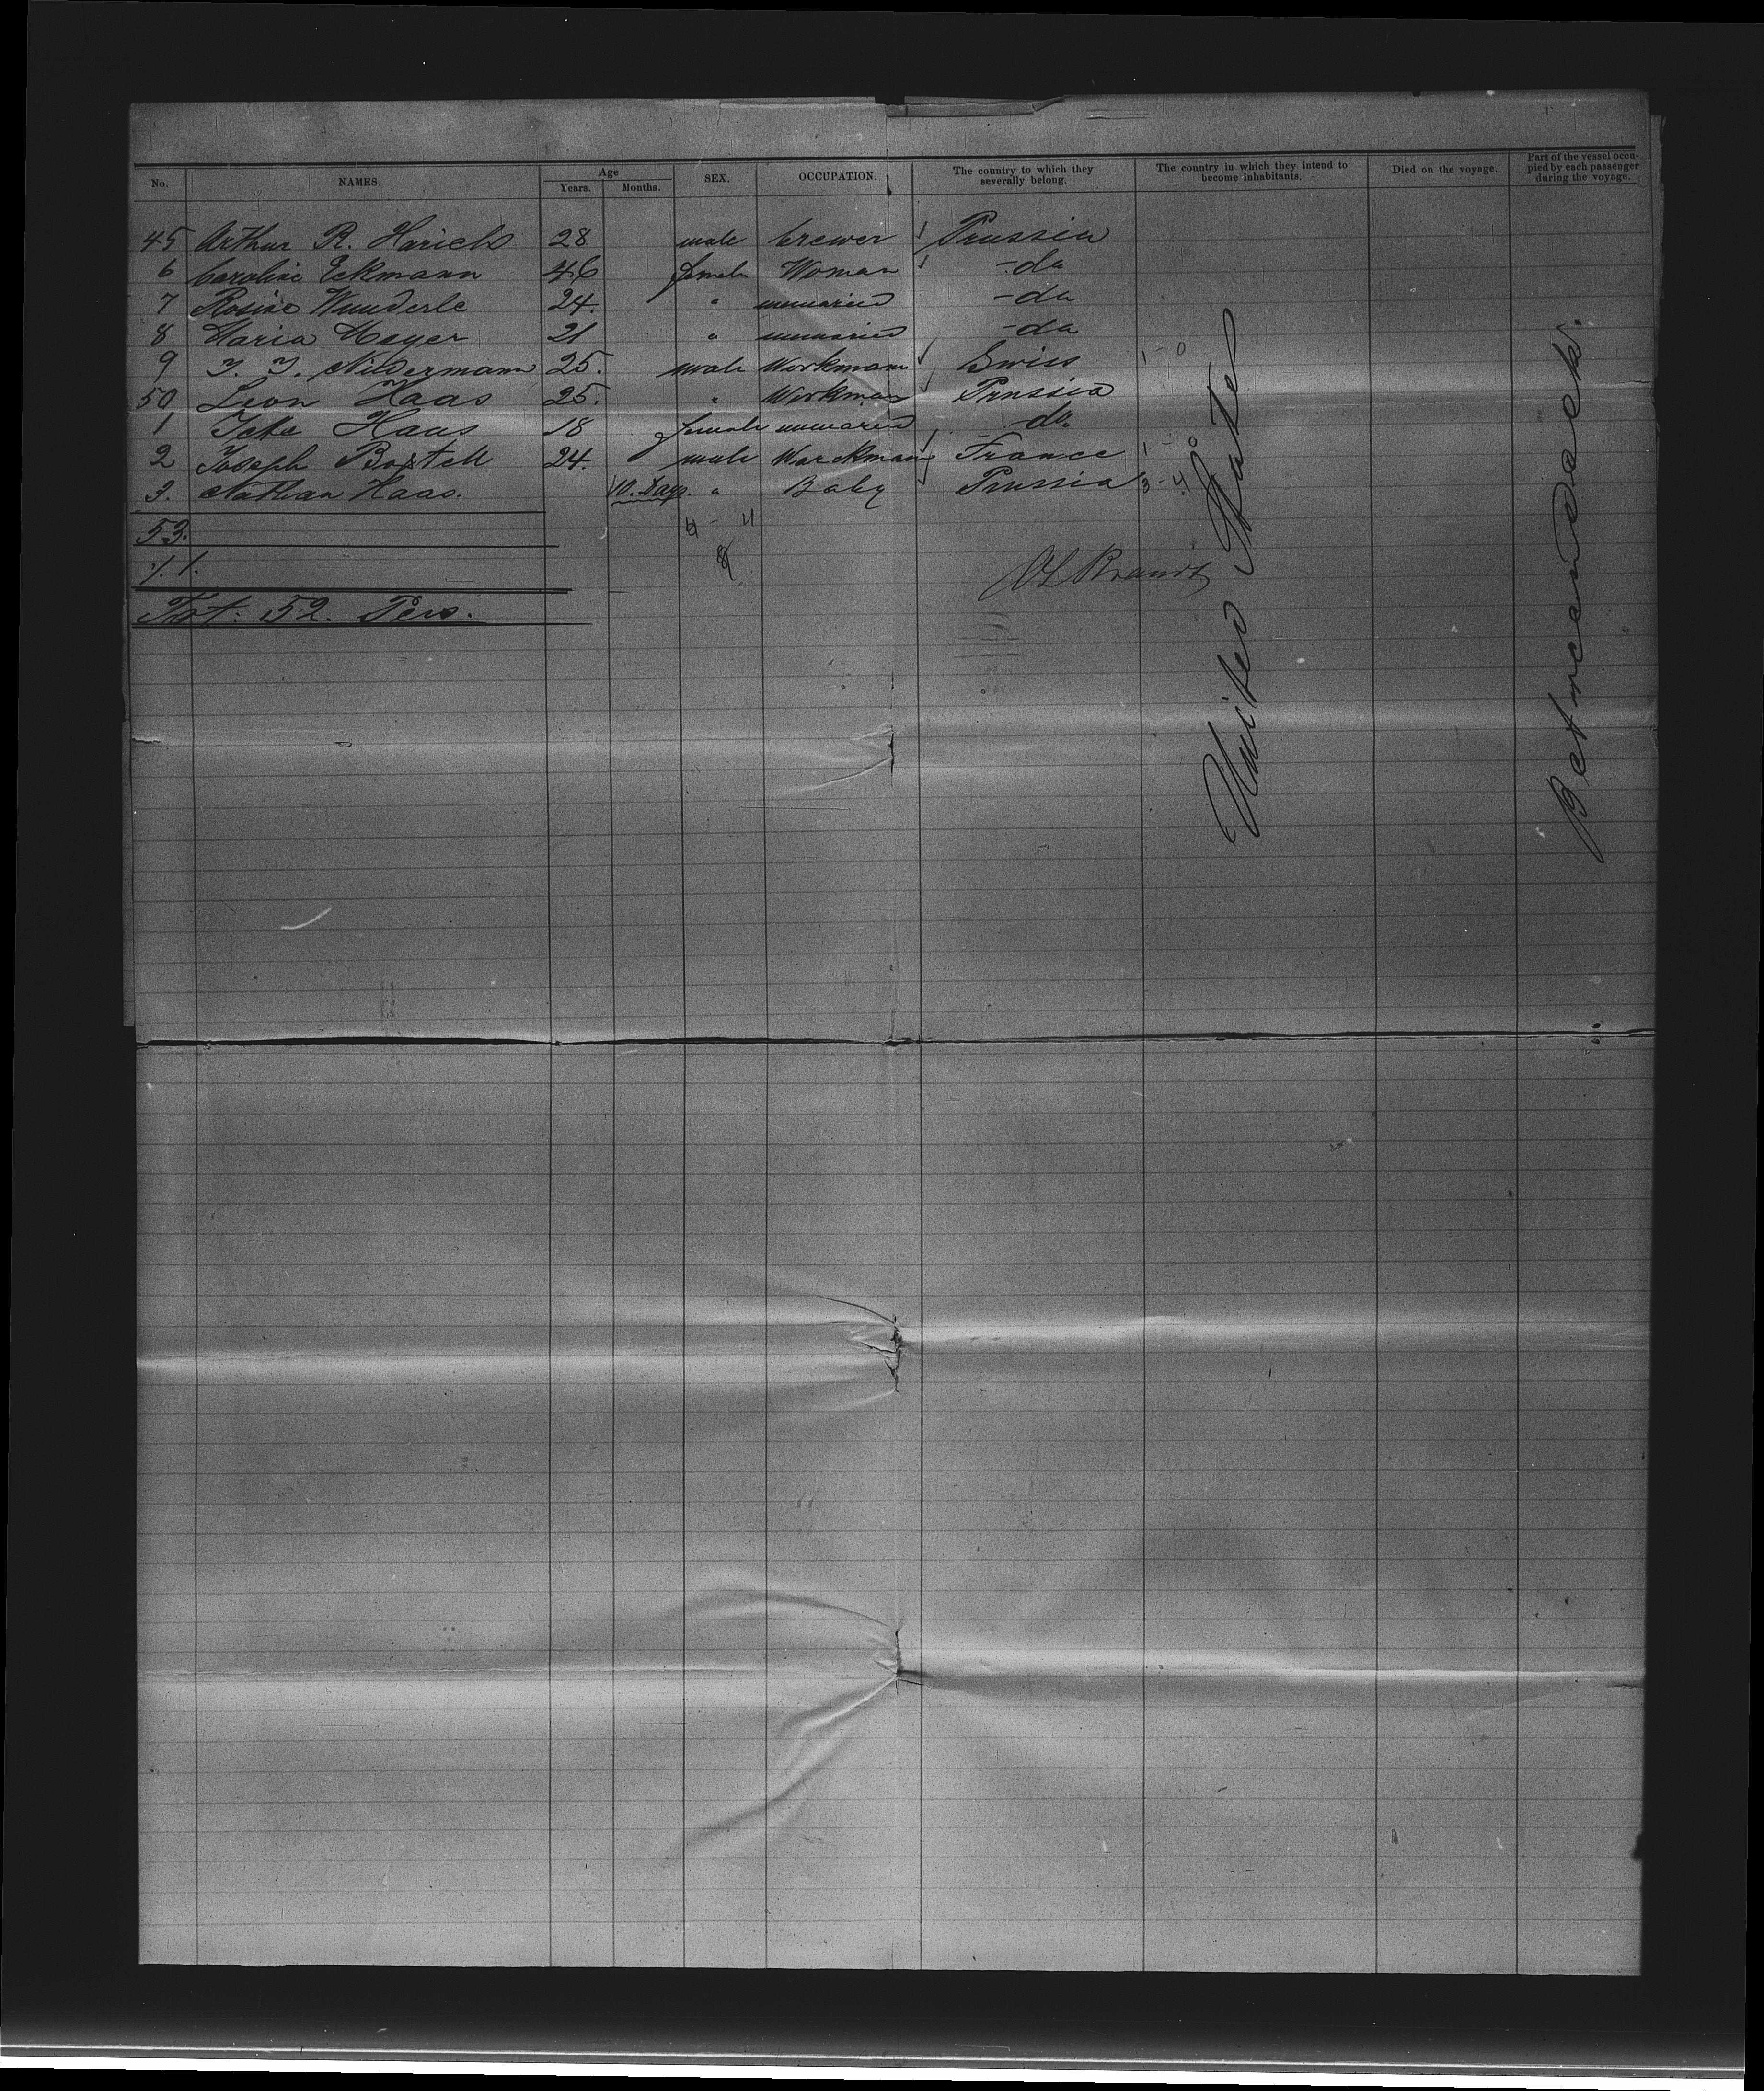 No. NAMES. Age Years. Months. SEX. OCCUPATION. The country to which they severally belong. The country in which they intend to become inhabitants. Died on the voyage. Part of the vessel occupied by each passenger during the voyage.
45 Arthur R. Harich 28 male brewer Prussia
6 Caroline Eckmann 46 female Woman - do
7 Rosine Wunderle 24. " unmaried - do
8 Maria Meyer 21 " unmaried - do
9 J. J. Nidermann 25. male Workmann Swiss 1 - 0
50 Leon Haas 25. " Workman Prussia
1 Haas 18 female unmaried do.
2 Joseph 24. male Worckmann France 1 - 0
3. Nathan Haas. 10. Days. " Baby Prussia 3 - 4
53. 4 - 4
1. 8 Brandt
Tot: 52. Pers.
United States
Betweendeck.